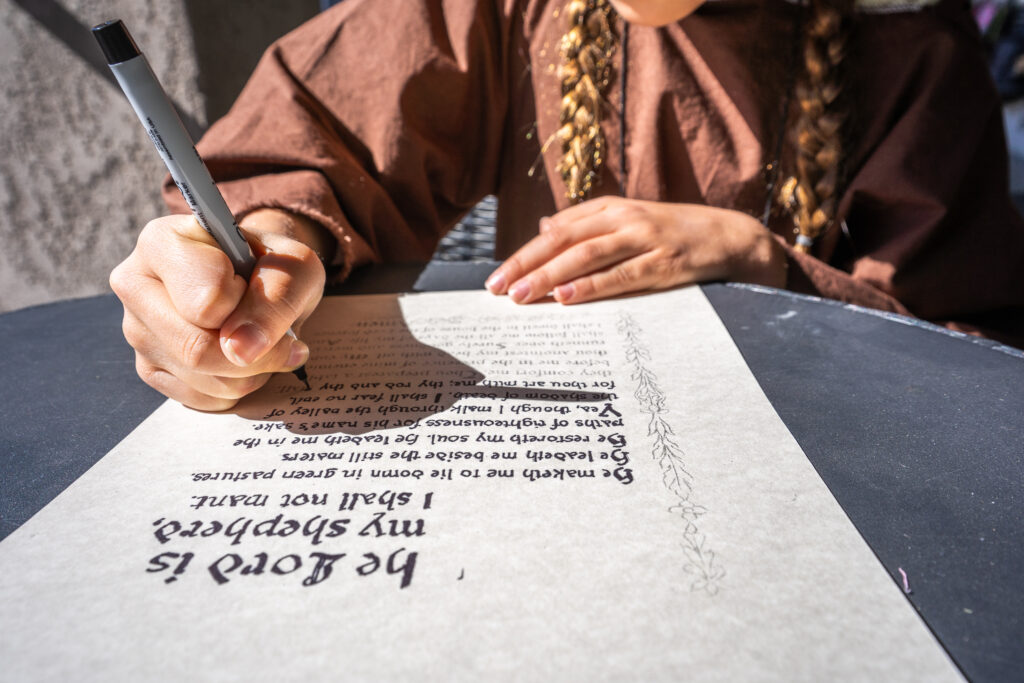 he Lord is
my shepherd,
I shall not want.
He maketh me to lie down in green pastures.
He leadeth me beside the still waters
He restoreth my soul. He leadeth me in the
paths of righteousness for his name's sake.
Yea, though I walk through the valley of
the shadow of death, I shall fear no evil,
for thou art with me; thy rod and thy
they comfort me. Thou preparest a
before me in the presence of mine
thou anointest my head with oil
runneth over. Surely
shall follow me all the days
I shall dwell in the house of